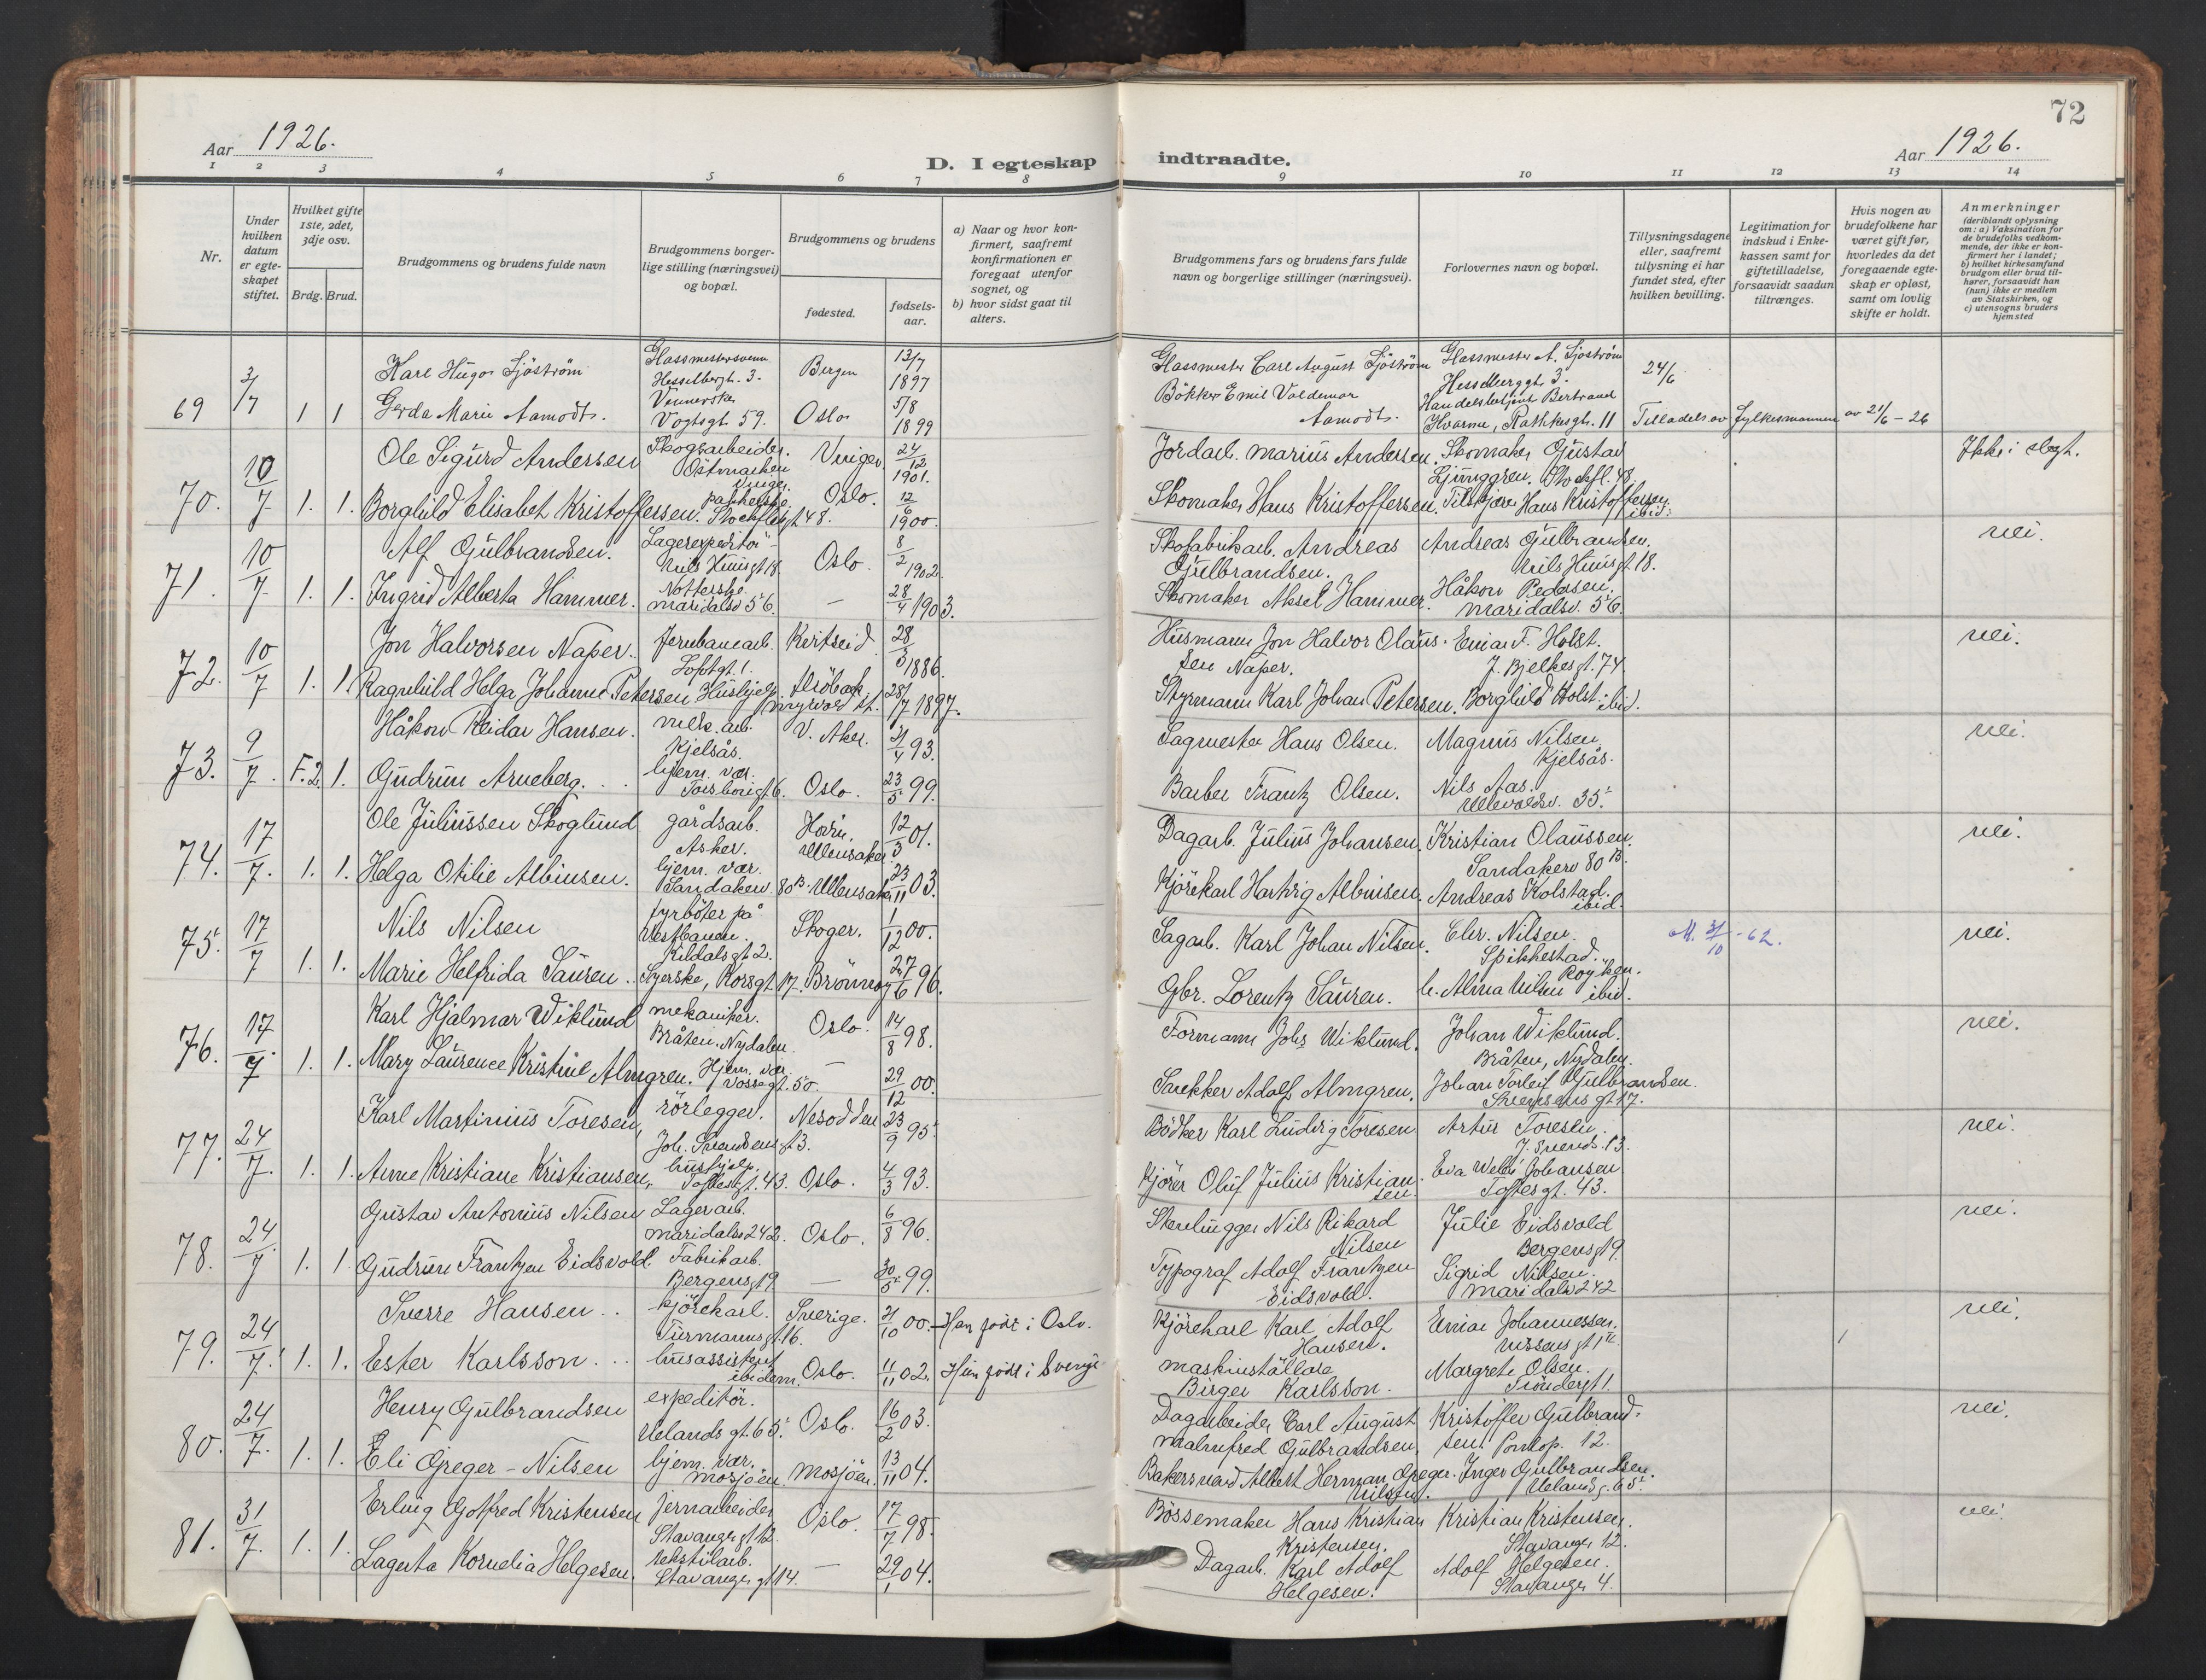 72
Aar 1926.
D. I egteskap indtraadte.
Aar 1926.
1 2 3 4 5 6 7 8 9 10 11 12 13 14
Nr.
Under hvilken datum er egteskapet stiftet.
Hvilket gifte 1ste, 2det, 3dje osv.
Brdg. Brud.
Brudgommens og brudens fulde navn
Brudgommens borgerlige stilling (næringsvei) og bopæl.
Brudgommens og brudens
fødested.
fødselsaar.
a) Naar og hvor konfirmert, saafremt konfirmationen er foregaat utenfor sognet, og
b) hvor sidst gaat til alters.
Brudgommens fars og brudens fars fulde navn og borgerlige stillinger (næringsvei).
Forlovernes navn og bopæl.
Tillysningsdagene eller, saafremt tillysning ei har fundet sted, efter hvilken bevilling.
Legitimation for indskud i Enkekassen samt for giftetilladelse, forsaavidt saadan tiltrænges.
Hvis nogen av brudefolkene har været gift før, hvorledes da det foregaaende egteskap er opløst, samt om lovlig skifte er holdt.
Anmerkninger
(deriblandt oplysning om: a) Vaksination for de brudefolks vedkommende, der ikke er konfirmert her i landet; b) hvilket kirkesamfund brudgom eller brud tilhører, forsaavidt han (hun) ikke er medlem av Statskirken, og c) utensogns bruders hjemsted
69 3/7 1 1
Karl Hugo Sjöström Glassmestersvenn Hesselbergsgt. 3. Bergen 13/7 1897
Glassmester Carl August Sjöström Glassmester A. Sjöström Hesselberggt. 3. 24/6
Gerda Marie Aamodt. Vognsgt. 59. Oslo 5/8 1899
Bökker Emil Valdemar Aamodt. Handelsbetjent Bertrand Hvarme, Rathkesgt. 11 Tilladels av Fylkesmannen av 21/6 - 26
70. 10/7 1. 1.
Ole Sigurd Andersen Skogsarbeider. Östmarken Vinger. Vinger 24/12 1901.
Jordarb. Marius Andersen. Skomaker Gustav Ljunggren. Stockfl. 48. Ikke i slegt.
Borghild Elisabet Kristoffersen. Stockflet gt 48. Oslo. 12/6 1900.
Skomaker Hans Kristoffersen. Hans Kristoffersen ibid.
71. 10/7 1. 1.
Alf Gulbrandsen. Lagerexpeditör Nils Huusgt 18 Oslo. 8/2 1902.
Skofabrikarb. Andreas Gulbrandsen. Andreas Gulbrandsen. Nils Huusgt 18. nei.
Ingrid Alberta Hammer. Maridalsv 56. — 28/4 1903.
Skomaker Aksel Hammer. Håkon Pedersen. Maridalsv. 56.
72. 10/7 1. 1.
Jon Halvorsen Naper. Jernbanearb. Loftgt. 1. Kvitseid 28/3 1886.
Husmann Jon Halvor Olaussen Naper. Einar F. Holst. J. Bjelkes gt. 74 nei.
Ragnhild Helga Johanne Petersen Hushjelp. Myrvold st. Dröbak. 28/7 1897.
Styrmann Karl Johan Petersen. Borghild Holst ibid.
73. 9/7. F.2. 1.
Håkon Reidar Hansen. mek. arb. Kjelsås. V. Aker. 21/4 93.
Sagmester Hans Olsen. Magnus Nilsen. Kjelsås. nei.
Gudrun Arneberg. hjem. vær. Oslo. 23/5 99.
Barber Frantz Olsen. Nils Aas. Ullevoldsv. 35.
74. 17/7. 1. 1.
Ole Juliussen Skoglund gårdsarb. Asker. Hovin, Ullensaker 12/3 01.
Dagarb. Julius Johansen. Kristian Olaussen. Sandakerv 80 B. nei.
Helga Otilie Albinsen. hjem. vær. Sandakerv. 80 B. Ullensaker 23/11 03.
Kjörekarl Hartvig Albinsen. Andreas Kolstad. ibid.
75. 17/7 1. 1.
Nils Nilsen fyrböter på Vestbanen. Kildalsgt 2. Skoger. 1/12 00.
Sagarb. Karl Johan Nilsen. Chr. Nilsen. Spikkestad. Røyken. M. 31/10 - 62. nei.
Marie Helfrida Sauren. Syerske, Korsgt. 17. Brönnøy 27/6 96.
Gbr. Lorentz Sauren. h. Alma Nilsen ibid.
76. 17/7 1. 1.
Karl Hjalmar Wiklund mekaniker. Bråten, Nydalen. Oslo. 14/8 98.
Formann Johs Wiklund. Johan Wiklund. Bråten, Nydalen. nei.
Mary Laurence Kristine Almgren. Hjem. vær. Vossegt. 50. — 29/12 00.
Snekker Adolf Almgren. Johan Torleif Gulbrandsen.
77. 24/7. 1. 1.
Karl Martinius Toresen, rörlegger. Joh. Svendsens gt 3. Nesodden 23/9 95.
Bödker Karl Ludvig Toresen Artur Toresen. J. Svends. 13. nei.
Anne Kristiane Kristiansen, hushjelp. Toftesgt. 43. Oslo. 4/3 93.
Kjörer Oluf Julius Kristiansen. Eva Johansen Toftesgt. 43.
78. 24/7 1. 1.
Gustav Antonius Nilsen Lagerarb. Maridalsv 242. Oslo. 6/8 96.
Stenhugger Nils Rikard Nilsen Julie Eidsvold Bergensgt 9. nei.
Gudrun Frantzen Eidsvold. Fabrikarb. Bergensgt 9. — 30/5 99.
Typograf Adolf Frantzen Eidsvold. Sigrid Nilsen. Maridalsv 242
79. 24/7. 1. 1.
Sverre Hansen kjörekarl. Turmannsgt. 16. Sverige. 21/10 00. Han født i Oslo.
Kjörekarl Karl Adolf Hansen. Einar Johannessen. nei.
Ester Karlsson husassistent ibidem. Oslo. 4/11 02. Hun født i Sverige
maskinställare Birger Karlsson. Margrete Olsen. Tröndergt 1.
80. 24/7. 1. 1.
Henry Gulbrandsen expeditör. Uelands gt. 65. Oslo. 16/2 03.
Dagarbeider Carl August Malmfred Gulbrandsen. Kristoffer Gulbrandsen. 12. nei.
Eli Greger-Nilsen hjem. vær. Mosjöen. Mosjöen. 13/11 04.
Albert Herman Greger Nilsen. Inger Gulbrandsen. Uelandsg. 65.
81. 31/7. 1. 1.
Erling Gotfred Kristensen Jernarbeider Stavangergt. 12. Oslo. 17/7 98.
Bössemaker Hans Kristian Kristensen. Kristian Kristensen. Stavanger 12. nei.
Lagerta Kornelia Helgesen. tekstilarb. Stavanger gt 14. — 29/1 04.
Dagarb. Karl Adolf Helgesen. Adolf Helgesen. Stavanger 4.